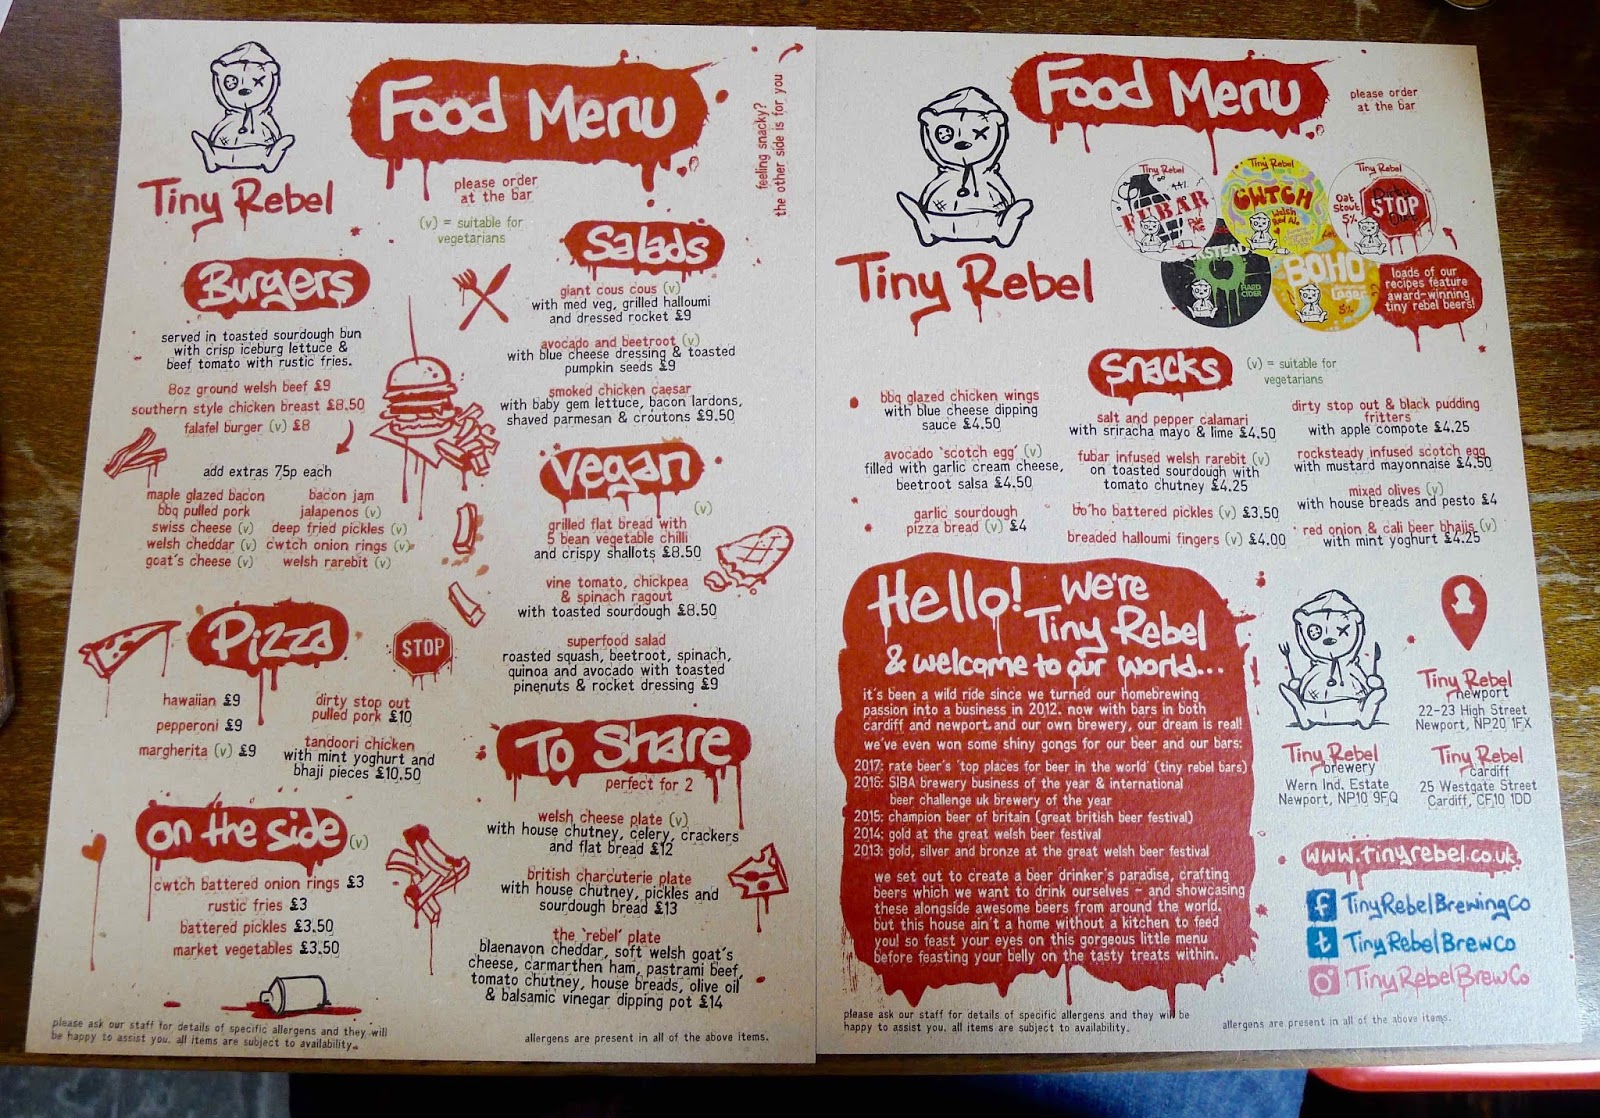 Food Menu
Tiny Rebel
please order
at the bar
(v) = suitable for
vegetarians
feeling snacky?
the other side is for you
Burgers
served in toasted sourdough bun
with crisp iceburg lettuce &
beef tomato with rustic fries.
8oz ground welsh beef £9
southern style chicken breast £8.50
falafel burger (v) £8
add extras 75p each
maple glazed bacon
bbq pulled pork
swiss cheese (v)
welsh cheddar (v)
goat's cheese (v)
bacon jam
jalapenos (v)
deep fried pickles (v)
cwtch onion rings (v)
welsh rarebit (v)
Pizza
STOP
hawaiian £9
pepperoni £9
margherita (v) £9
dirty stop out
pulled pork £10
tandoori chicken
with mint yoghurt and
bhaji pieces £10.50
on the side (v)
cwtch battered onion rings £3
rustic fries £3
battered pickles £3.50
market vegetables £3.50
please ask our staff for details of specific allergens and they will
be happy to assist you. all items are subject to availability.
Salads
giant cous cous (v)
with med veg, grilled halloumi
and dressed rocket £9
avocado and beetroot (v)
with blue cheese dressing & toasted
pumpkin seeds £9
smoked chicken caesar
with baby gem lettuce, bacon lardons,
shaved parmesan & croutons £9.50
Vegan
(v)
grilled flat bread with
5 bean vegetable chilli
and crispy shallots £8.50
vine tomato, chickpea
& spinach ragout
with toasted sourdough £8.50
superfood salad
roasted squash, beetroot, spinach,
quinoa and avocado with toasted
pinenuts & rocket dressing £9
To Share
perfect for 2
welsh cheese plate (v)
with house chutney, celery, crackers
and flat bread £12
british charcuterie plate
with house chutney, pickles and
sourdough bread £13
the 'rebel' plate
blaenavon cheddar, soft welsh goat's
cheese, carmarthen ham, pastrami beef,
tomato chutney, house breads, olive oil
& balsamic vinegar dipping pot £14
allergens are present in all of the above items.
Food Menu
please order
at the bar
Tiny Rebel
Tiny Rebel
FUBAR
Tiny Rebel
CWTCH
Welsh
Red Ale
Tiny Rebel
Oat
Stout
5%
Dirty
STOP
Out
HARD
CIDER
BOHO
Lager
5%
loads of our
recipes feature
award-winning
tiny rebel beers!
Snacks
(v) = suitable for
vegetarians
bbq glazed chicken wings
with blue cheese dipping
sauce £4.50
avocado 'scotch egg' (v)
filled with garlic cream cheese,
beetroot salsa £4.50
garlic sourdough
pizza bread (v) £4
salt and pepper calamari
with sriracha mayo & lime £4.50
fubar infused welsh rarebit (v)
on toasted sourdough with
tomato chutney £4.25
bo'ho battered pickles (v) £3.50
breaded halloumi fingers (v) £4.00
dirty stop out & black pudding
fritters
with apple compote £4.25
rocksteady infused scotch egg
with mustard mayonnaise £4.50
mixed olives (v)
with house breads and pesto £4
red onion & cali beer bhajis (v)
with mint yoghurt £4.25
Hello! We're
Tiny Rebel
& welcome to our world...
it's been a wild ride since we turned our homebrewing
passion into a business in 2012. now with bars in both
cardiff and newport and our own brewery, our dream is real!
we've even won some shiny gongs for our beer and our bars:
2017: rate beer's 'top places for beer in the world' (tiny rebel bars)
2016: SIBA brewery business of the year & international
beer challenge uk brewery of the year
2015: champion beer of britain (great british beer festival)
2014: gold at the great welsh beer festival
2013: gold, silver and bronze at the great welsh beer festival
we set out to create a beer drinker's paradise, crafting
beers which we want to drink ourselves - and showcasing
these alongside awesome beers from around the world.
but this house ain't a home without a kitchen to feed
you! so feast your eyes on this gorgeous little menu
before feasting your belly on the tasty treats within.
please ask our staff for details of specific allergens and they will be
happy to assist you. all items are subject to availability.
Tiny Rebel
newport
22-23 High Street
Newport, NP20 1FX
Tiny Rebel
brewery
Wern Ind. Estate
Newport, NP10 9FQ
Tiny Rebel
cardiff
25 Westgate Street
Cardiff, CF10 1DD
www.tinyrebel.co.uk
f TinyRebelBrewingCo
t TinyRebelBrewCo
TinyRebelBrewCo
allergens are present in all of the above items.